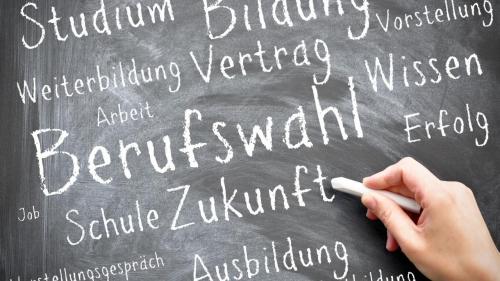 Studium Bildung Vorstellung
Weiterbildung Vertrag Wissen
Arbeit
Berufswahl Erfolg
Job Schule Zukunft
Vorstellungsgespräch Ausbildung